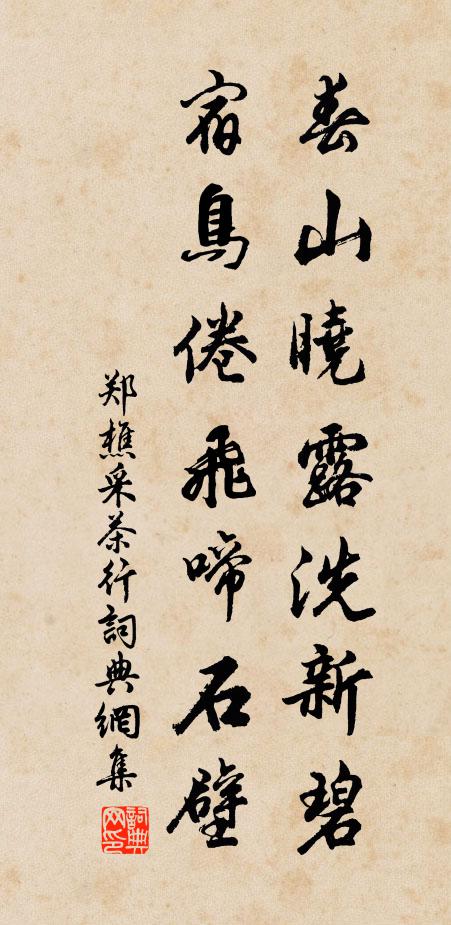 春山曉露洗新碧
宿鳥倦飛啼石壁
郑樵采茶行詞典網集
詞典网印